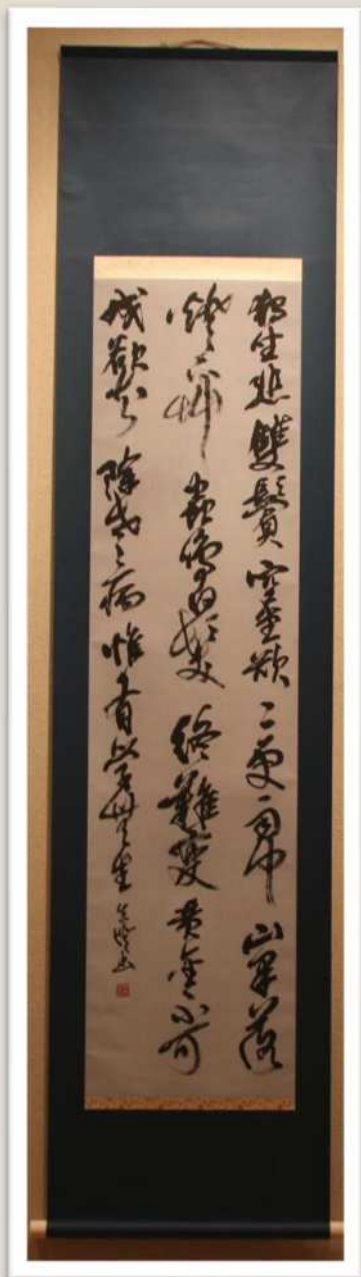 獨坐悲雙鬢空堂欲二更雨中山果落
燈下艸蟲鳴白髮終難變黃金不可
成欲知除老病惟有學無生